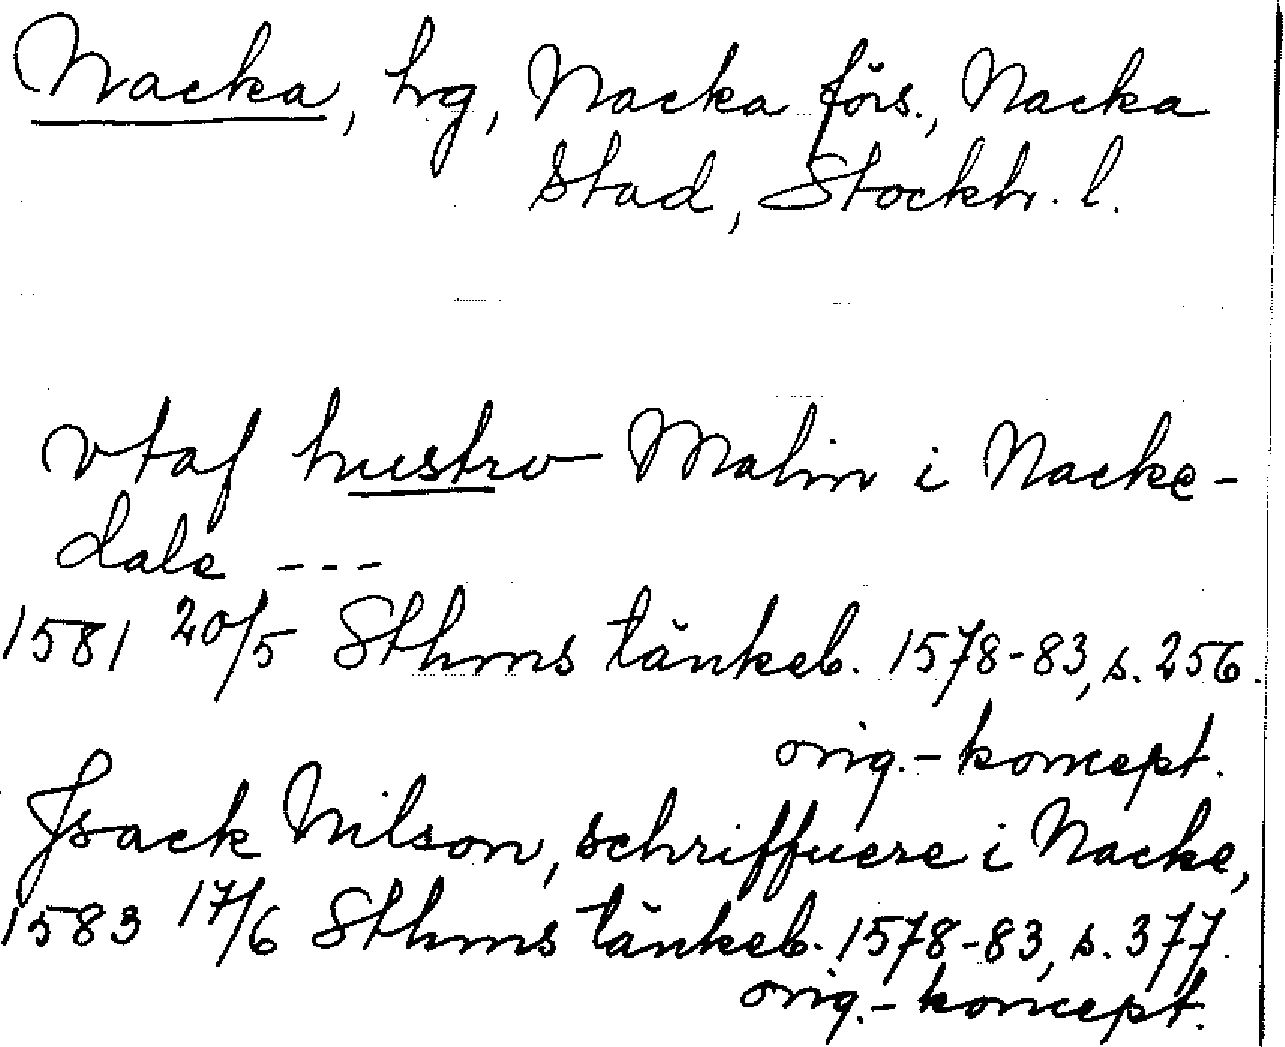 Nacka, hg, Nacka förs., Nacka
stad, Stockh. l.
vtaf hustro Malin i Nacke-
dale ---
1581 20/5 Sthms tänkeb. 1578-83, s. 256.
orig.-koncept.
Jsack Nilson, schriffuere i Nacke,
1583 17/6 Sthms tänkeb. 1578-83, s. 377.
orig.-koncept.